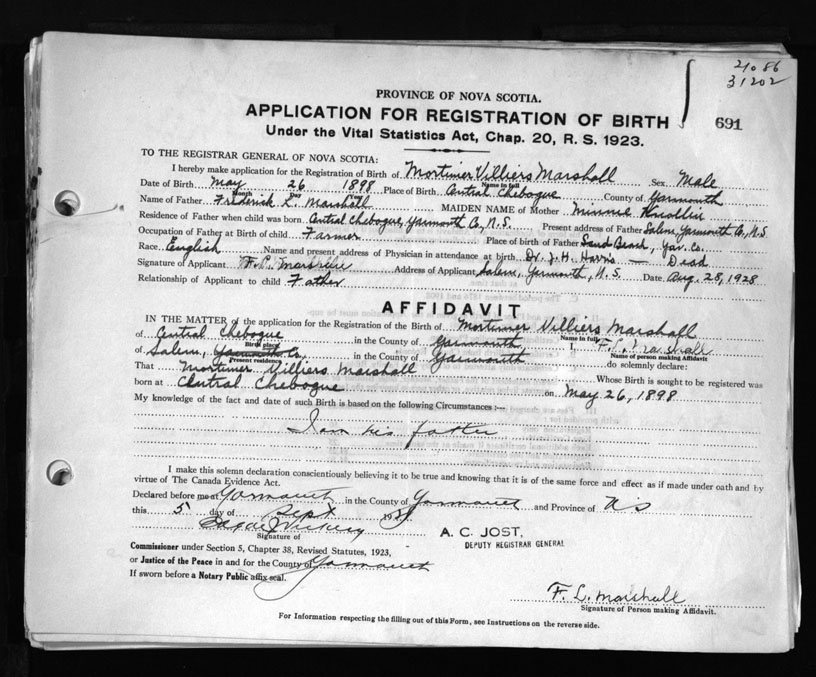 2086
31202
PROVINCE OF NOVA SCOTIA.
APPLICATION FOR REGISTRATION OF BIRTH
691
Under the Vital Statistics Act, Chap. 20, R. S. 1923.
TO THE REGISTRAR GENERAL OF NOVA SCOTIA:
I hereby make application for the Registration of Birth of Mortimer Villiers Marshall Sex Male
Name in full
Date of Birth May 26 1898 Place of Birth Central Chebogue County of Yarmouth
Month Day
Name of Father Frederick L. Marshall MAIDEN NAME of Mother Minnie
Residence of Father when child was born Central Chebogue, Yarmouth Co, N.S. Present address of Father Salem, Yarmouth Co, N.S
Occupation of Father at Birth of child Farmer Place of birth of Father Sand Beach, Yar. Co.
Race English Name and present address of Physician in attendance at birth Dr. J. H. Harris — Dead
Signature of Applicant F. L. Marshall Address of Applicant Salem, Yarmouth, N.S. Date Aug. 28, 1928
Relationship of Applicant to child Father
AFFIDAVIT
IN THE MATTER of the application for the Registration of the Birth of Mortimer Villiers Marshall
Name in full
of Central Chebogue in the County of Yarmouth, I, F. L. Marshall
Birth place Name of person making Affidavit
of Salem, Yarmouth Co, in the County of Yarmouth do solemnly declare:
Present residence
That Mortimer Villiers Marshall Whose Birth is sought to be registered was
born at Central Chebogue on May 26, 1898
My knowledge of the fact and date of such Birth is based on the following Circumstances :—
I am his father
I make this solemn declaration conscientiously believing it to be true and knowing that it is of the same force and effect as if made under oath and by
virtue of The Canada Evidence Act.
Declared before me at Yarmouth in the County of Yarmouth and Province of N S
this 5 day of Sept 192
Signature of
A. C. JOST,
DEPUTY REGISTRAR GENERAL
Commissioner under Section 5, Chapter 38, Revised Statutes, 1923,
or Justice of the Peace in and for the County of Yarmouth
If sworn before a Notary Public affix seal.
F. L. Marshall
Signature of Person making Affidavit.
For Information respecting the filling out of this Form, see Instructions on the reverse side.